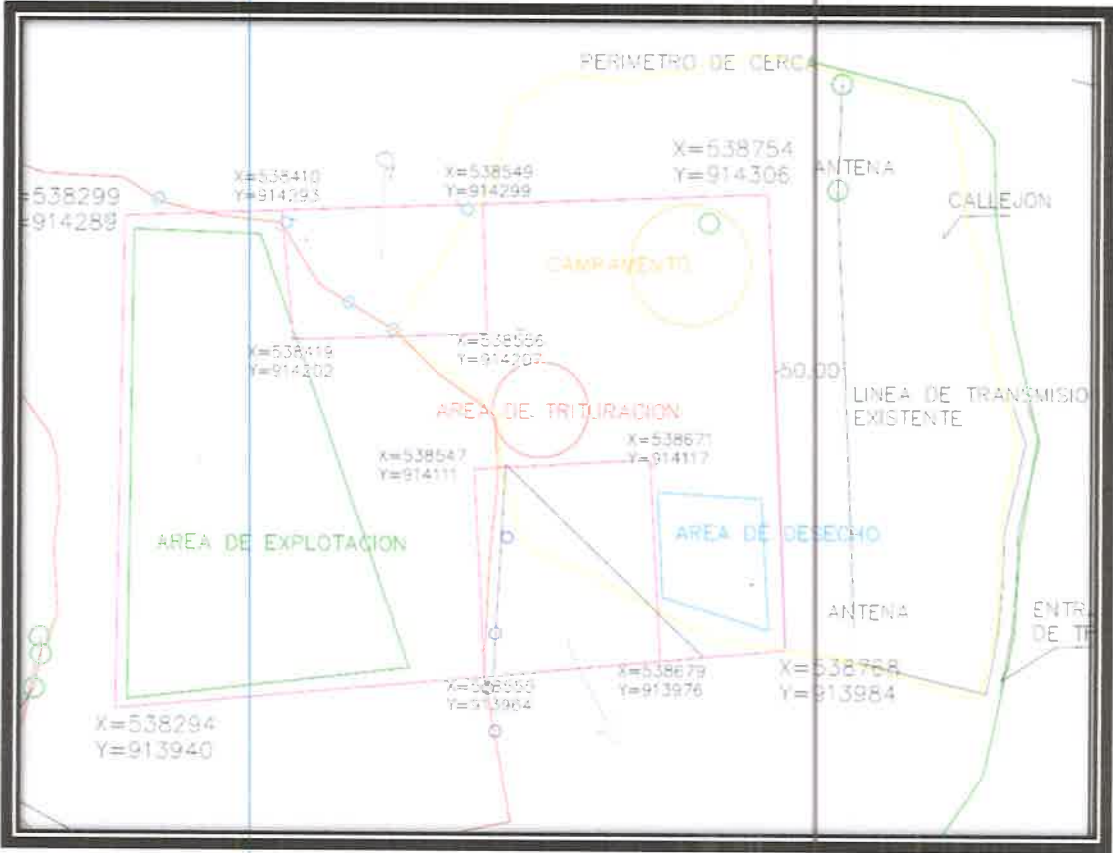 PERIMETRO DE CERCA
X=538754
Y=914306
ANTENA
CALLEJON
=538299
=914289
X=538410
Y=914293
X=538549
Y=914299
CAMPAMENTO
X=538419
Y=914202
X=538556
Y=914207
50.00
LINEA DE TRANSMISIO
EXISTENTE
AREA DE TRITURACION
X=538547
Y=914111
X=538671
Y=914117
AREA DE EXPLOTACION
AREA DE DESECHO
ANTENA
ENTR
DE
X=538555
Y=913964
X=538679
Y=913976
X=538768
Y=913984
X=538294
Y=913940